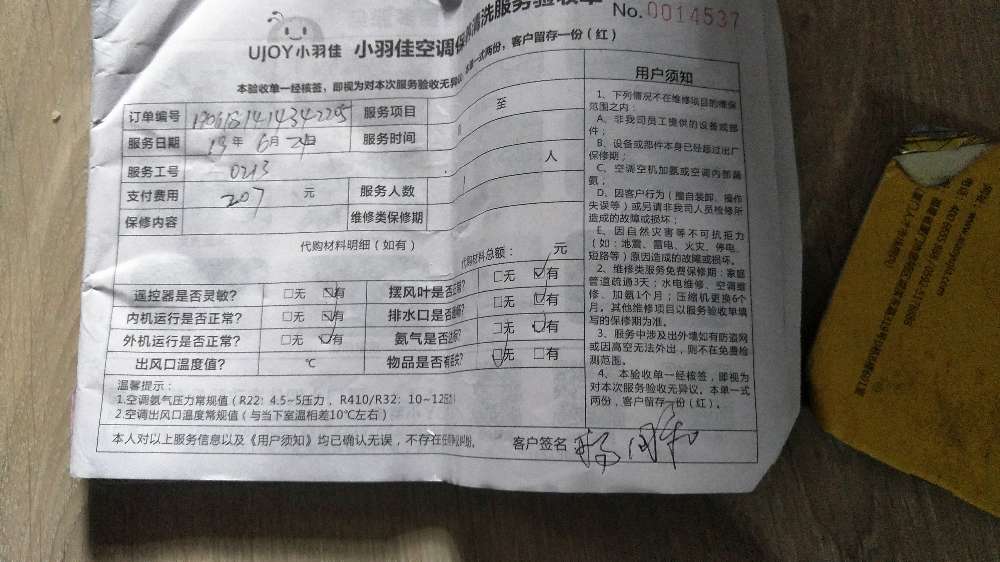 No.0014537
UJOY小羽佳 小羽佳空调保养清洗服务验收单
本验收单一经核签，即视为对本次服务验收无异议。本单一式两份，客户留存一份（红）
订单编号
服务项目
服务日期 19年6月24日 服务时间 至
服务工号 0213
支付费用 207 元 服务人数 人
保修内容 维修类保修期
代购材料明细（如有） 代购材料总额： 元
遥控器是否灵敏？ □无 ☑有 摆风叶是否正常？ □无 ☑有
内机运行是否正常？ □无 ☑有 排水口是否 □无 ☑有
外机运行是否正常？ □无 ☑有 氨气是否 □无 ☑有
出风口温度值？ ℃ 物品是否有丢失？ ☑无 □有
温馨提示：
1.空调氨气压力常规值（R22：4.5~5压力，R410/R32：10~12压力）
2.空调出风口温度常规值（与当下室温相差10℃左右）
本人对以上服务信息以及《用户须知》均已确认无误，不存在任何争议纠纷。 客户签名
用户须知
1、下列情况不在维修项目的维保
范围之内：
A、非我司员工提供的设备或部
件；
B、设备或部件本身已经超过出厂
保修期；
C、空调空机加氨或空调内部漏
氨；
D、因客户行为（擅自装卸、操作
失误等）或另请非我司人员检修所
造成的故障或损坏；
E、因自然灾害等不可抗拒力
（如：地震、雷电、火灾、停电、
短路等）原因造成的故障或损坏。
2、维修类服务免费保修期：家庭
管道疏通3天；水电维修、空调维
修、加氨1个月；压缩机更换6个
月。其他维修项目以服务验收单填
写的保修期为准。
3、服务中涉及出外墙如有防盗网
或因高空无法外出，则不在免费检
测范围。
4、本验收单一经核签，即视为
对本次服务验收无异议。本单一式
两份，客户留存一份（红）。